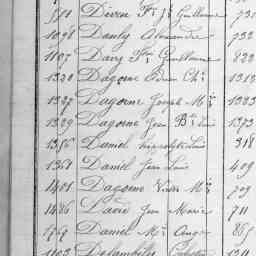 910 Diven Fs Js Guillaume 731
1098 Dauly Alexandre 732
1107 Davy Fois Guillaume 822
1320 Dagorne Edm Ch 1313
1327 Dagorne Joseph Mie 1323
1329 Dagorne Jean Bte Louis 1373
1356 Daniel hippolyte Louis 318
1361 Daniel Jean Louis 409
1401 Dagorne Victor Mie 709
1486 David Jean Marie 711
1769 Daniel Mie Ange 865
Delambily